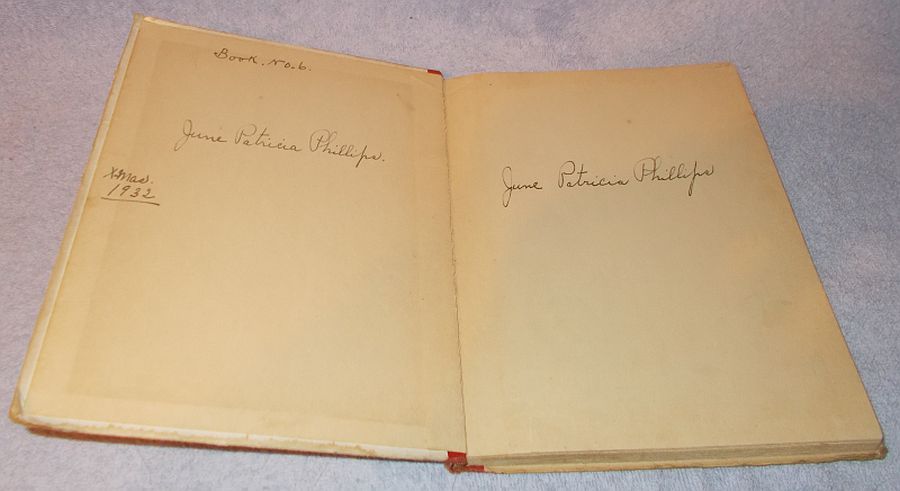 Book. No. 6.
June Patricia Phillips.
Xmas.
1932
June Patricia Phillips